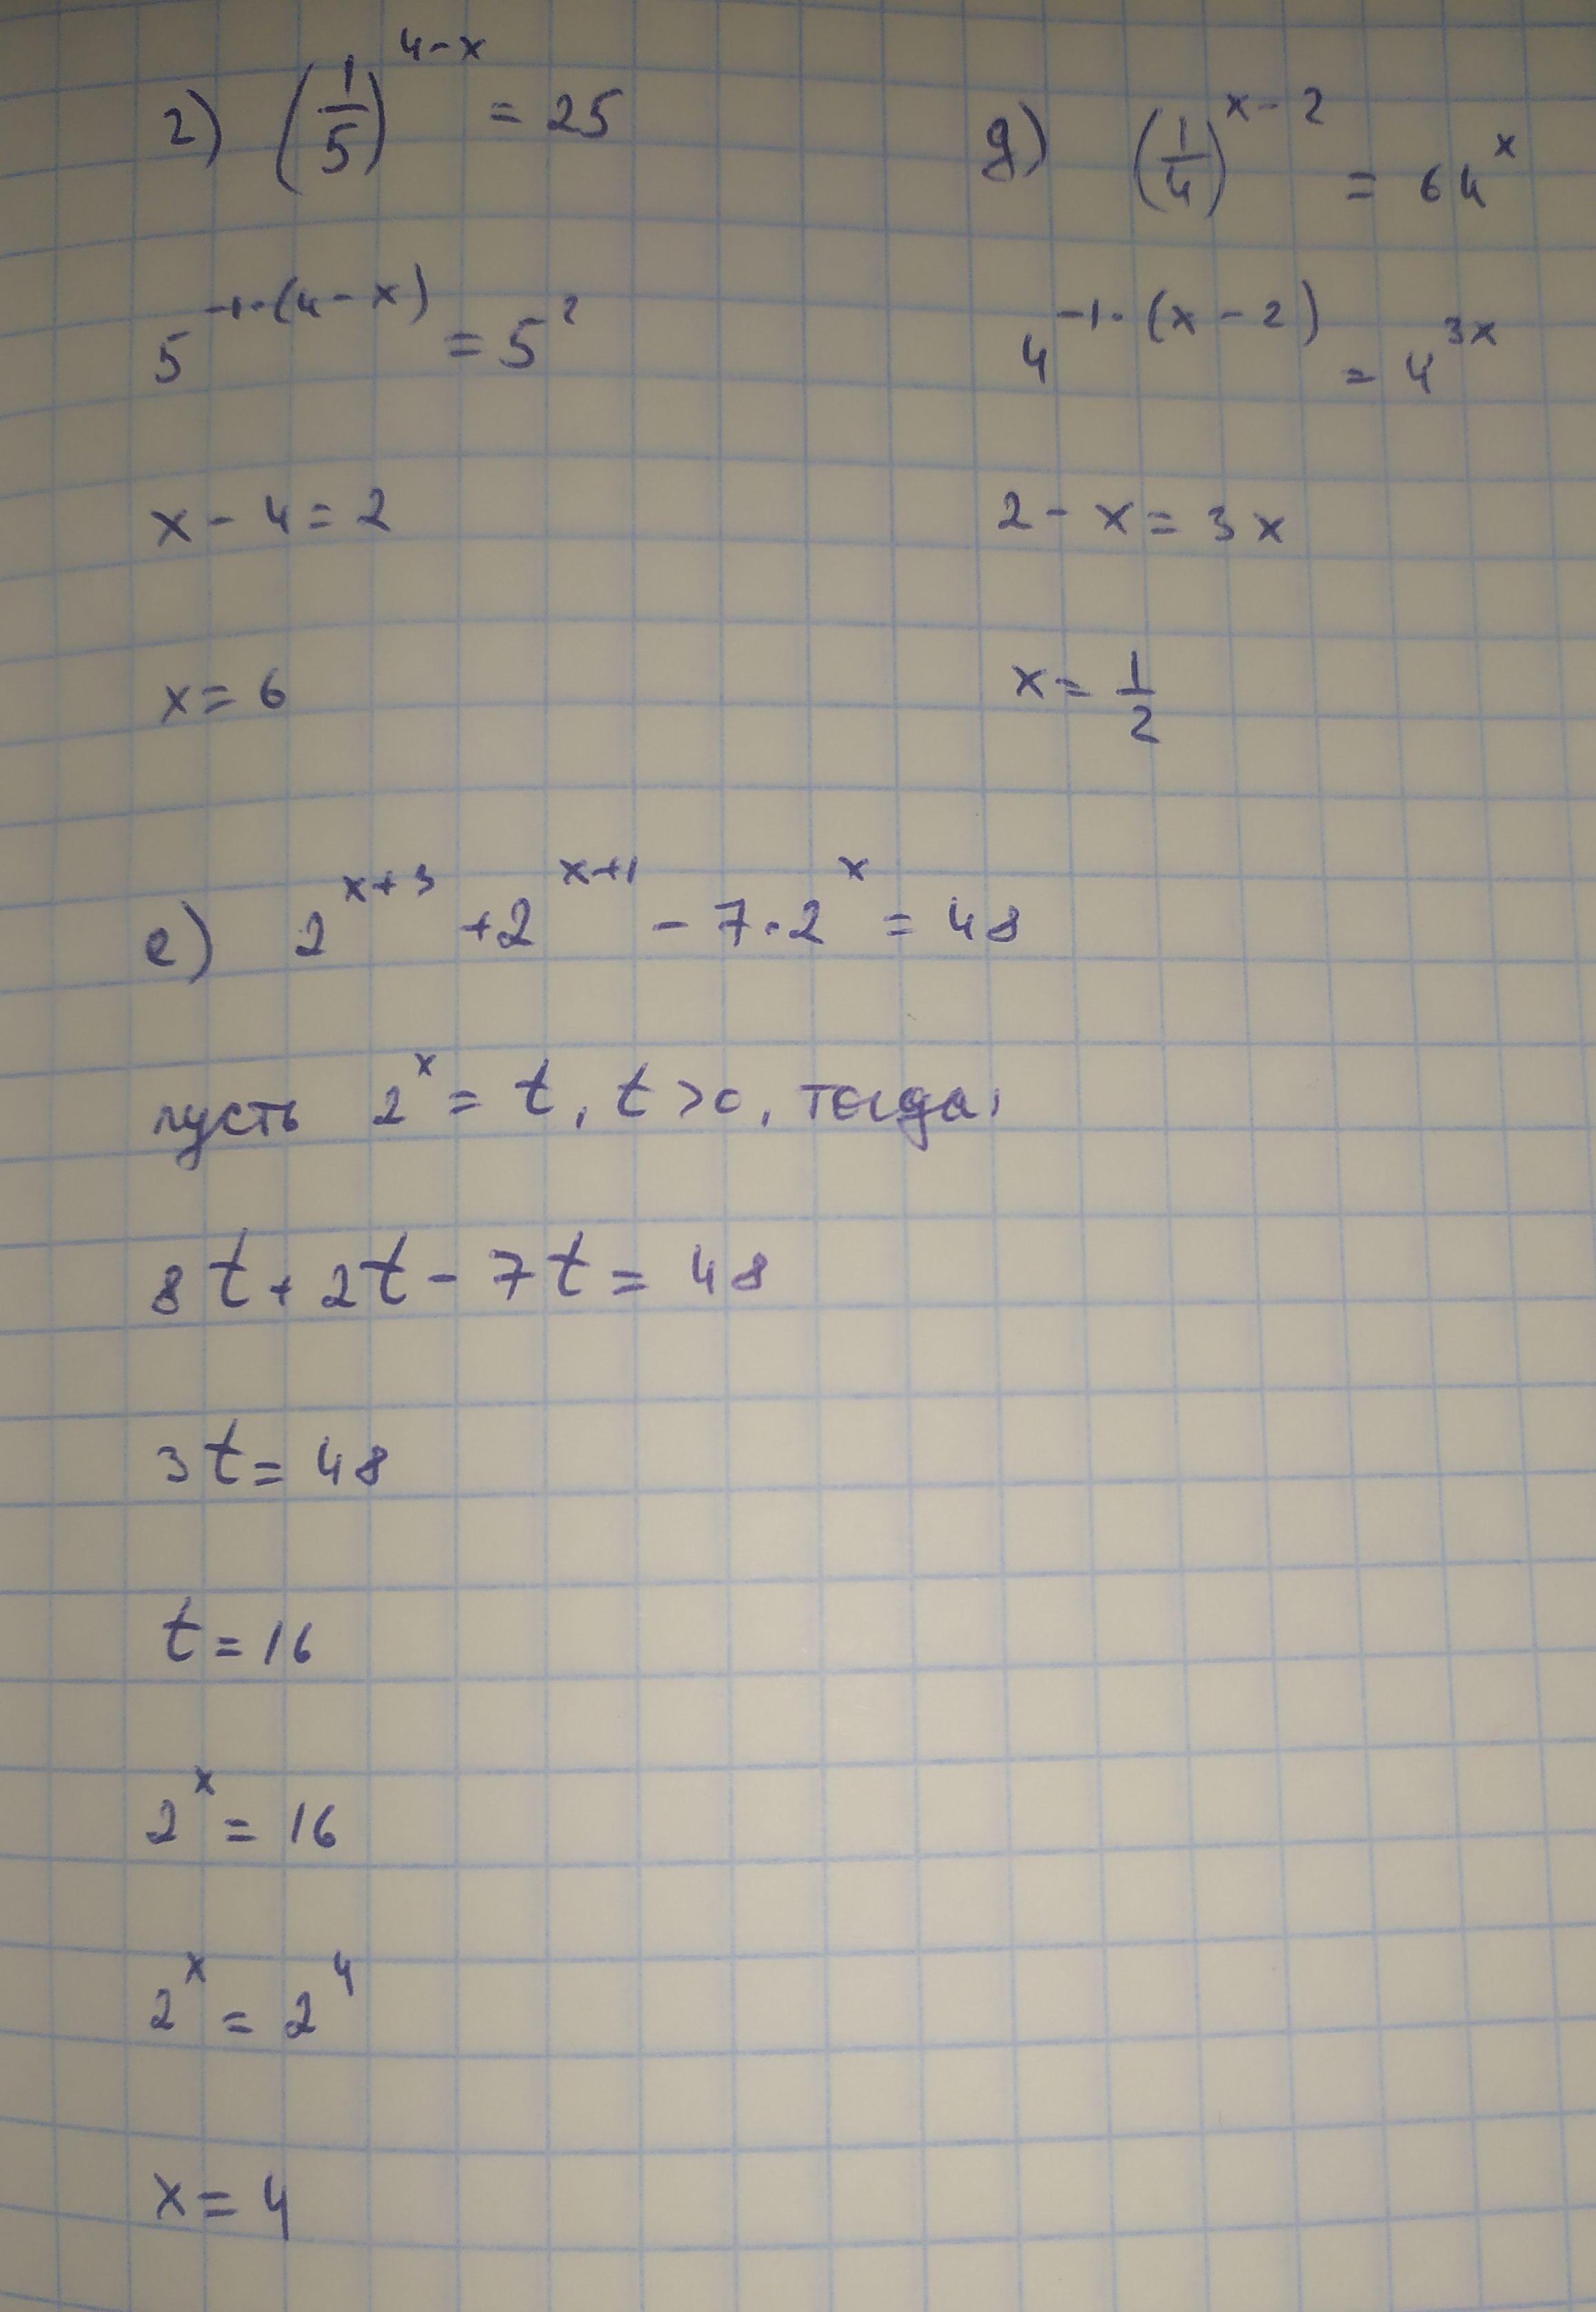 г) (1/5)^(4-x) = 25
5^(-1·(4-x)) = 5^2
x - 4 = 2
x = 6
д) (1/4)^(x-2) = 64^x
4^(-1·(x-2)) = 4^(3x)
2 - x = 3x
x = 1/2
е) 2^(x+3) + 2^(x+1) - 7·2^x = 48
пусть 2^x = t, t > 0, тогда,
8t + 2t - 7t = 48
3t = 48
t = 16
2^x = 16
2^x = 2^4
x = 4